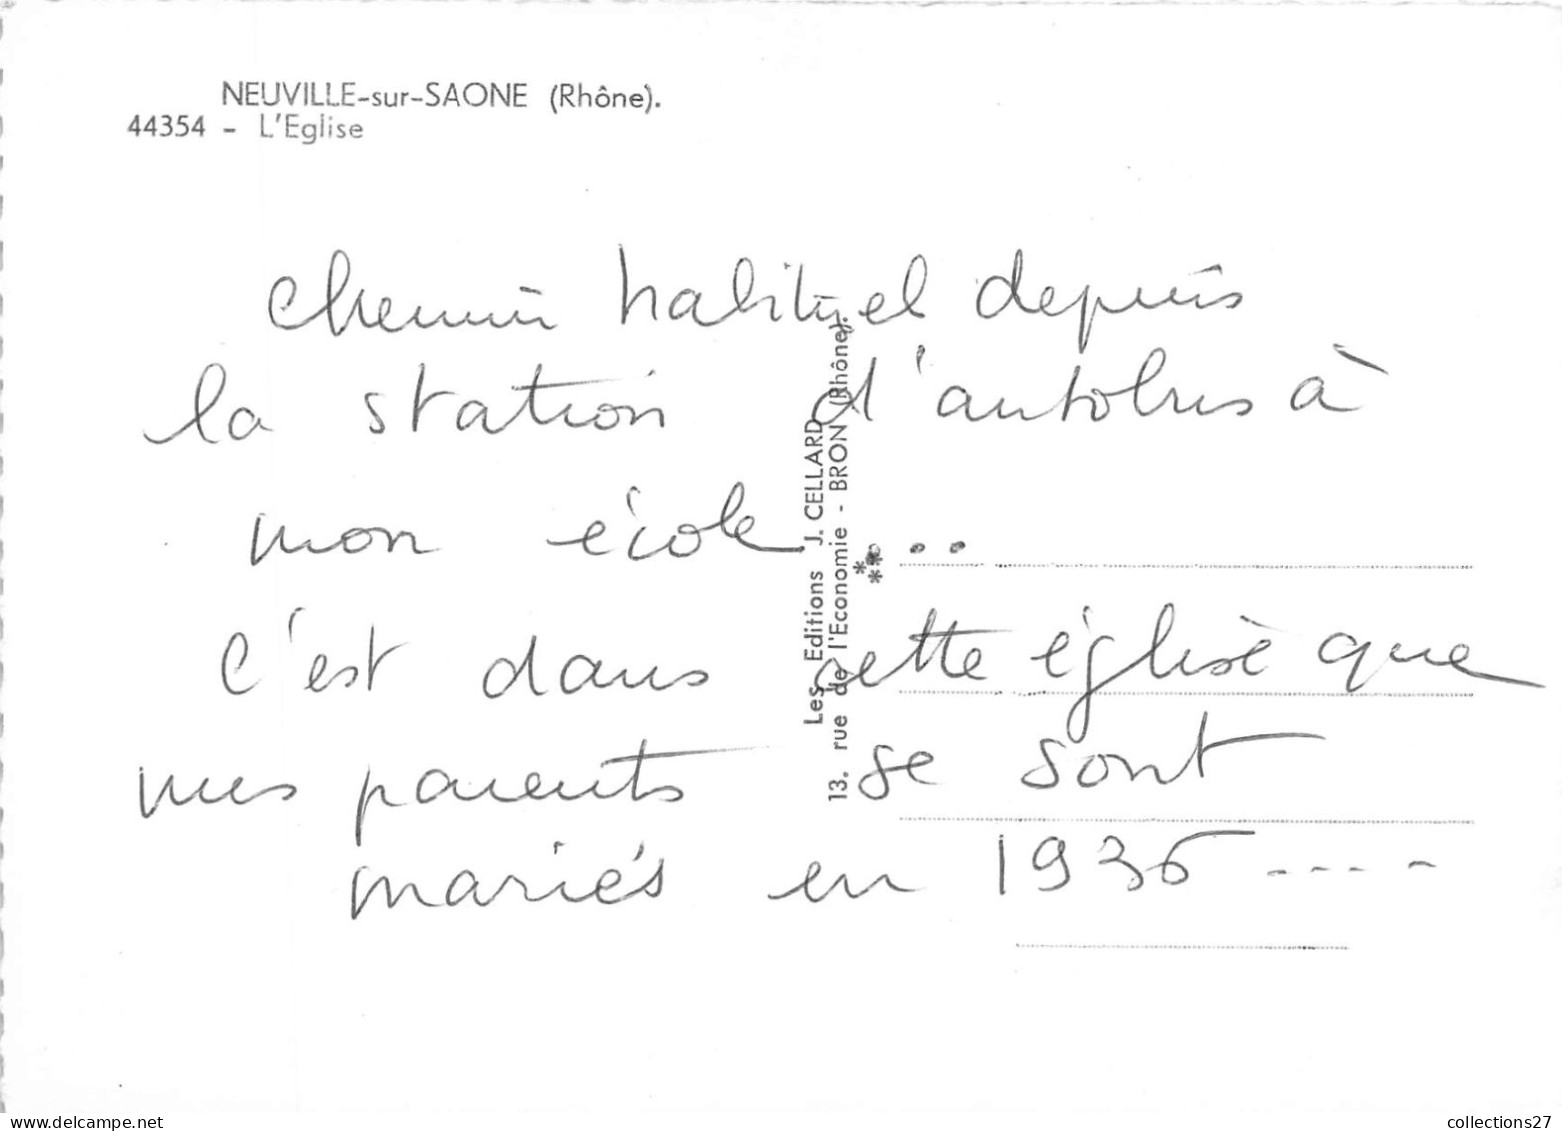 NEUVILLE-sur-SAONE (Rhône).
44354 - L'Eglise
chemin habituel depuis
la station d'autobus à
mon école...
C'est dans cette église que
mes parents se sont
mariés en 1936 ----
Les Editions J. CELLARD
13. rue de l'Economie - BRON (Rhône).
collections27